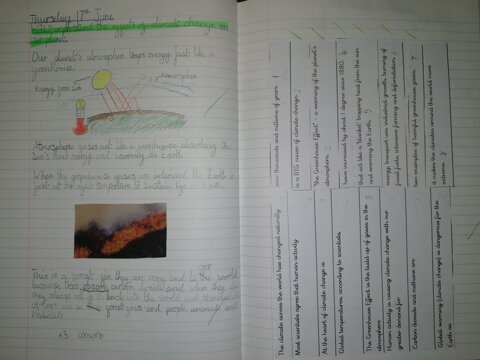 Thursday 17th June
LO: I understand the effects of climate change on
our planet.
Our planet's atmosphere traps energy just like a
greenhouse.
Energy from sun
Atmosphere
Atmosphere gases act like a greenhouse absorbing the
Sun's heat energy and warming the Earth.
When the greenhouse gases are balanced the Earth is
just at the right temperature to sustain life on Earth.
This is a forest fire they are very bad to the world
because trees carbon dioxide and when they die
they release all of it back into the world and
forest fires and people animals and
habitats
x3 absorb
The climate across the world has changed naturally
Most scientists agree that human activity
At the heart of climate change is
Global temperatures, according to scientists
The Greenhouse Effect is the build up of gases in the
atmosphere
Human activity is causing climate change with our
greater demand for
Carbon dioxide and methane are
Global warming (climate change) is dangerous for the
Earth as
over thousands and millions of years. 1
is a BIG cause of climate change 2
The 'Greenhouse Effect' - a warming of the planet's
atmosphere 3
have increased by about 1 degree since 1880. 4
that act like a 'blanket' trapping heat from the sun
and warming the Earth. 5
energy, transport use, industrial growth, burning of
fossil fuels, intensive farming and deforestation 6
two examples of harmful greenhouse gases. 7
it makes the climates around the world more
extreme. 8